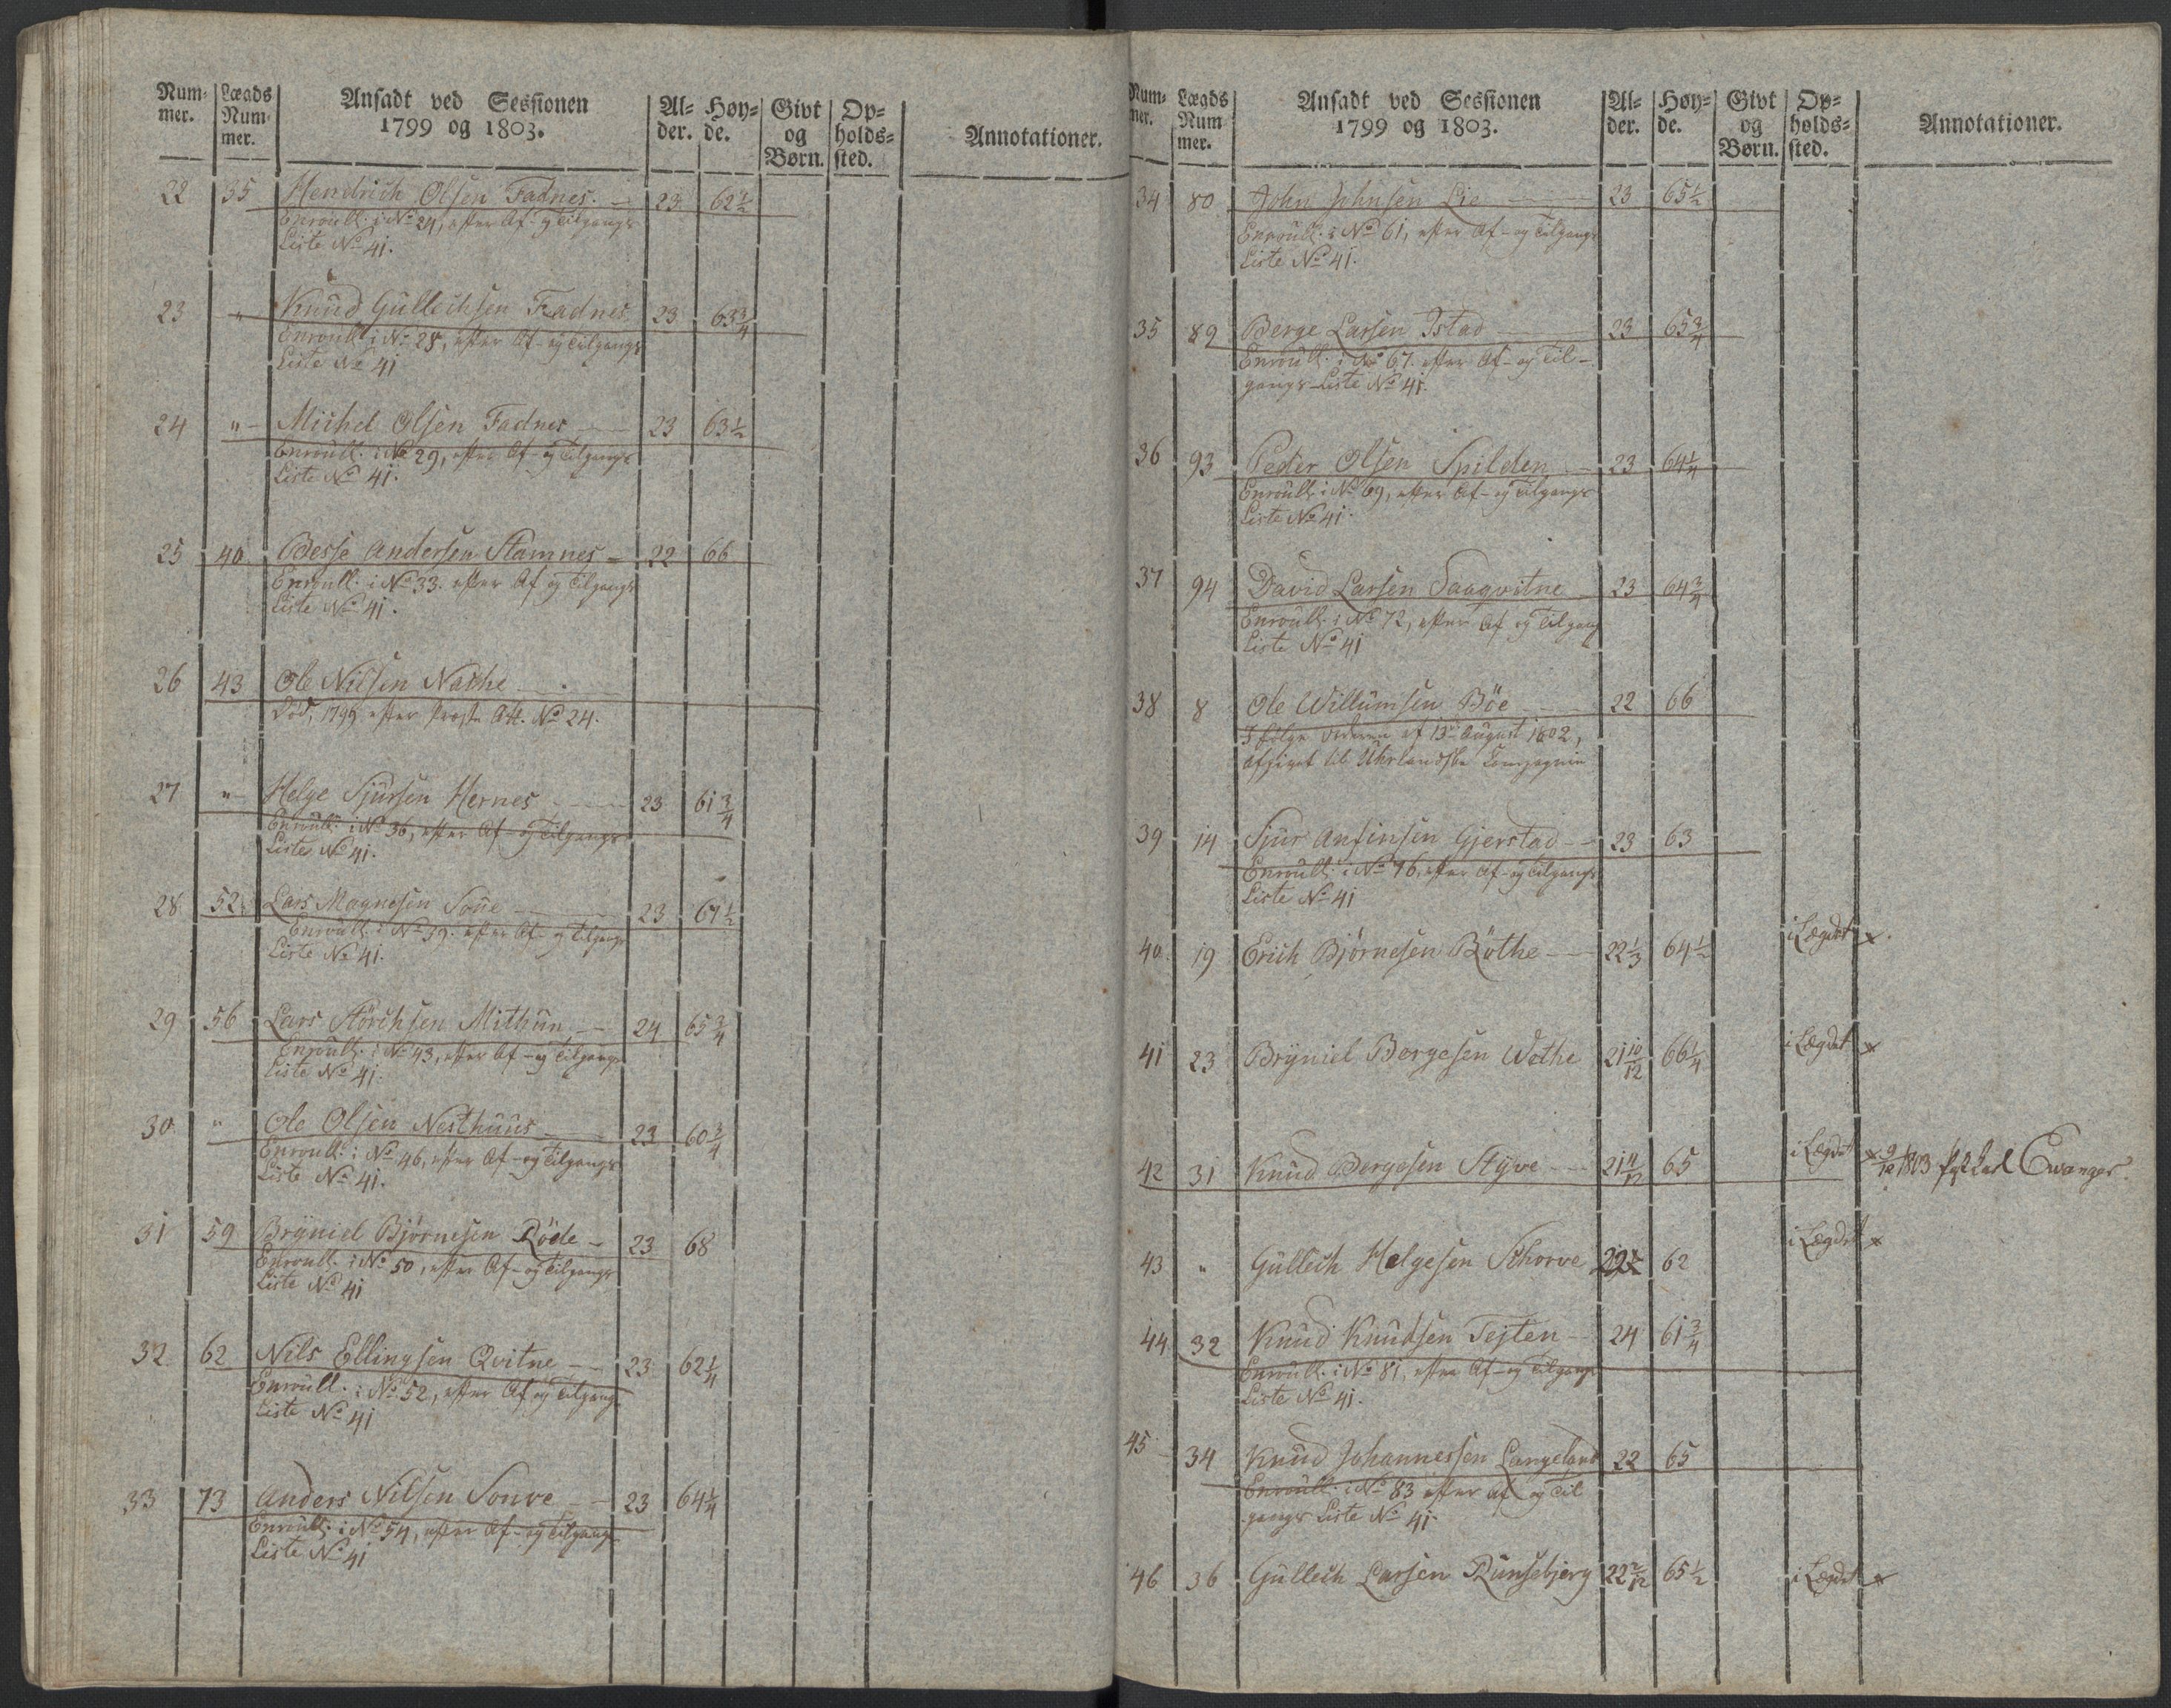 Num- Lægds Ansadt ved Sessionen Al- Høy- Givt Op- Annotationer.
mer. Num- 1799 og 1803. der. de. og holds-
mer. Børn. sted.
22 35 Hendrich Olsen Fadnes. 23 62 1/2
Enroull. i No 24, efter Af- og Tilgangs
Liste No 41.
23 " Knud Gullechsen Fadnes 23 63 3/4
Enroull. i No 28, efter Af- og Tilgangs
Liste No 41
24 " Michel Olsen Fadnes 23 63 1/2
Enroull. i No 29, efter Af- og Tilgangs
Liste No 41.
25 40 Besse Andersen Stamnes 22 66
Enroull. i No 33. efter Af og Tilgangs
Liste No 41.
26 43 Ole Nilsen Nashe
Död, 1799 efter Att. No 24.
27 " Helge Sjursen Hernes 23 61 3/4
Enroull. i No 36, efter Af- og Tilgangs
Liste No 41.
28 52 Lars Magnesen Soue 23 67 1/2
Enroull. i No 39. efter Af- og Tilgangs
Liste No 41.
29 56 Lars Störchsen Mithun 24 65 3/4
Enroull. i No 43, efter Af- og Tilgangs
Liste No 41.
30 " Ole Olsen Nesthuus 23 60 3/4
Enroull. i No 46, efter Af- og Tilgangs
Liste No 41.
31 59 Bryniel Bjørnesen Røde 23 68
Enroull. i No 50, efter Af- og Tilgangs
Liste No 41
32 62 Nils Ellingsen Qvitne 23 62 1/4
Enroull. i No 52, efter Af og Tilgangs
Liste No 41
33 73 Anders Nilsen Sonve 23 64 1/4
Enroull. i No 54, efter Af- og Tilgangs
Liste No 41
Num- Lægds Ansadt ved Sessionen Al- Høy- Givt Op- Annotationer.
mer. Num 1799 og 1803. der. de. og holds-
mer. Børn. sted.
34 80 John Johnsen Lie 23 65 1/2
Enroull. i No 61, efter Af- og Tilgangs
Liste No 41.
35 89 Berge Larsen Istad 23 65 3/4
Enroull. i No 67. efter Af- og Til-
gangs-Liste No 41.
36 93 Peder Olsen Spilden 23 64 1/4
Enroull. i No 69, efter Af- og Tilgangs
Liste No 41.
37 94 David Larsen Saaqvitne 23 64 3/4
Enroull. i No 72, efter Af og Tilgang
Liste No 41
38 8 Ole Willumsen Böe 22 66
Ifølge Ordren af 13de August 1802,
afgivet til Uhrlandske Compagnie
39 14 Sjur Anfinsen Gjerstad 23 63
Enroull. i No 76, efter Af- og Tilgangs
Liste No 41
40 19 Erich Bjørnesen Röthe 22 1/3 64 1/2 i Lægdet x
41 23 Bryniel Bergesen Wethe 21 10/12 66 1/4 i Lægdet x
42 31 Knud Bergesen Styve 21 11/12 65 i Lægdet x 9/12 1803 Evanger
43 " Gullech Helgesen Schorve 62 i Lægdet x
44 32 Knud Knudsen Tejten 24 61 3/4
Enroull. i No 81, efter Af- og Tilgangs
Liste No 41.
45 34 Knud Johannessen Langeland 22 65
Enroull. i No 83 efter Af og Til
gangs Liste No 41.
46 36 Gullech Larsen Runsebjerg 22 2/12 65 1/2 i Lægdet x